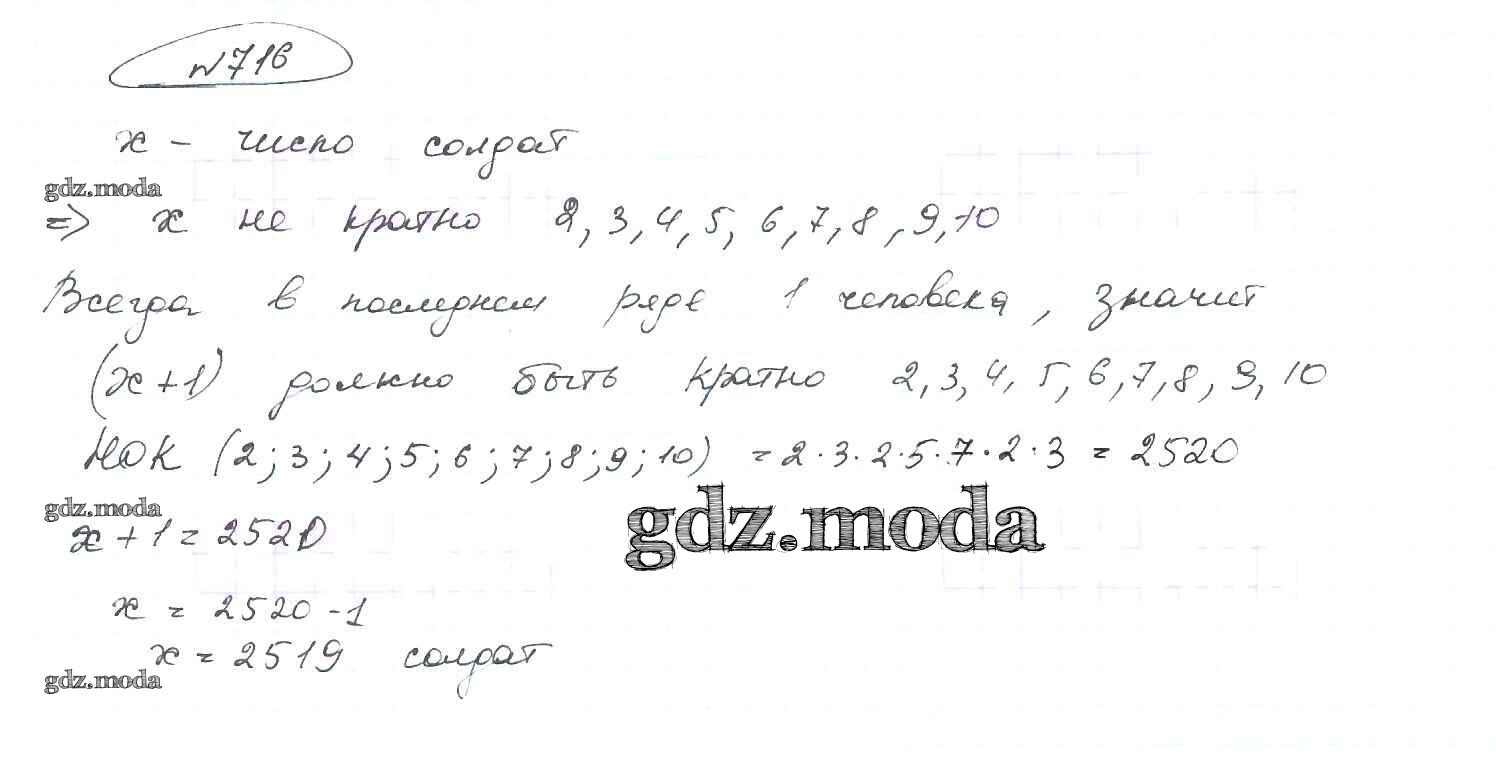 №716
x – число солдат
gdz.moda
=> x не кратно 2, 3, 4, 5, 6, 7, 8, 9, 10
Всегда в последнем ряде 1 человека, значит
(x+1) должно быть кратно 2, 3, 4, 5, 6, 7, 8, 9, 10
НОК (2; 3; 4; 5; 6; 7; 8; 9; 10) = 2·3·2·5·7·2·3 = 2520
gdz.moda
gdz.moda
x + 1 = 2520
x = 2520 - 1
x = 2519 солдат
gdz.moda